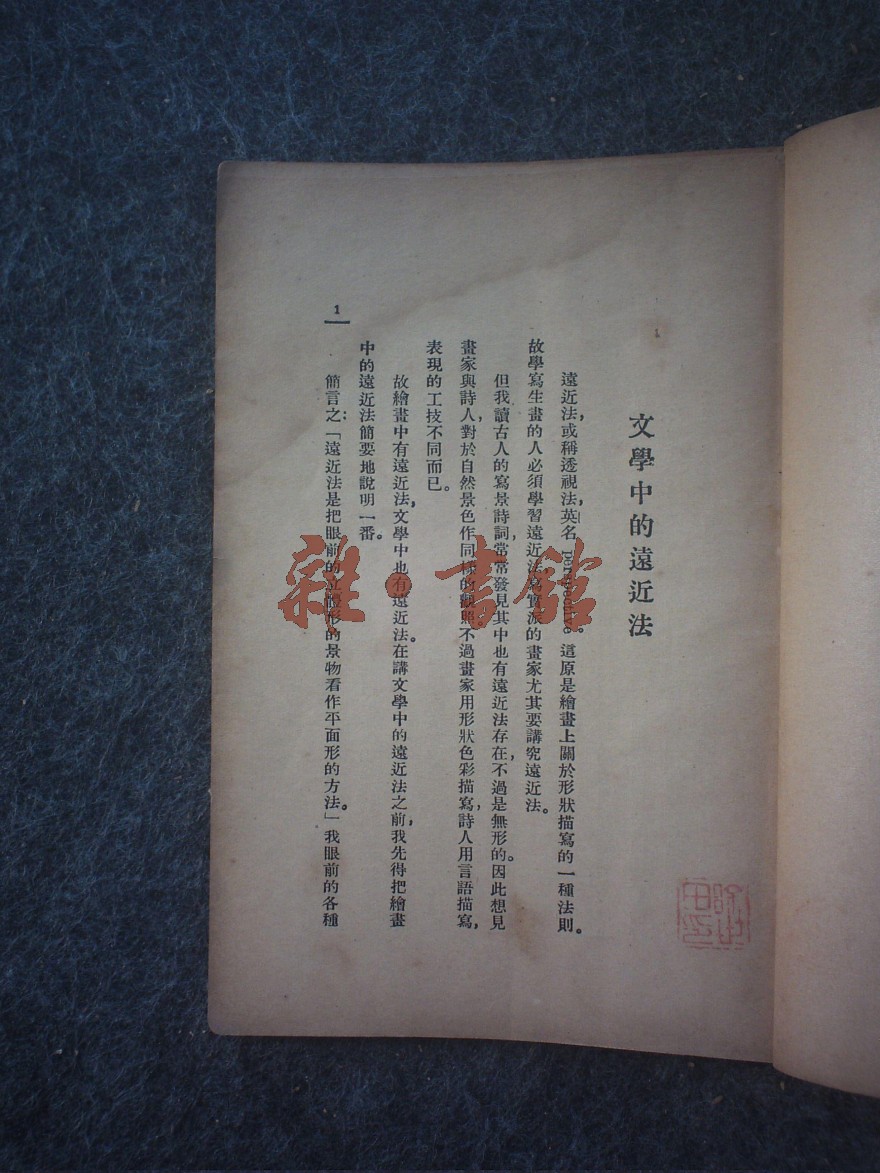 文學中的遠近法
遠近法，或稱透視法，英名 perspective。這原是繪畫上關於形狀描寫的一種法則。
故學寫生畫的人必須學習遠近法，寫實派的畫家尤其要講究遠近法。
但我讀古人的寫景詩詞，常常發見其中也有遠近法存在，不過是無形的。因此想見
畫家與詩人，對於自然景色作同樣的觀照。不過畫家用形狀色彩描寫，詩人用言語描寫，
表現的工技不同而已。
故繪畫中有遠近法，文學中也有遠近法。在講文學中的遠近法之前，我先得把繪畫
中的遠近法簡要地說明一番。
簡言之：「遠近法是把眼前的立體形的景物看作平面形的方法。」我眼前的各種
1
雜·書館